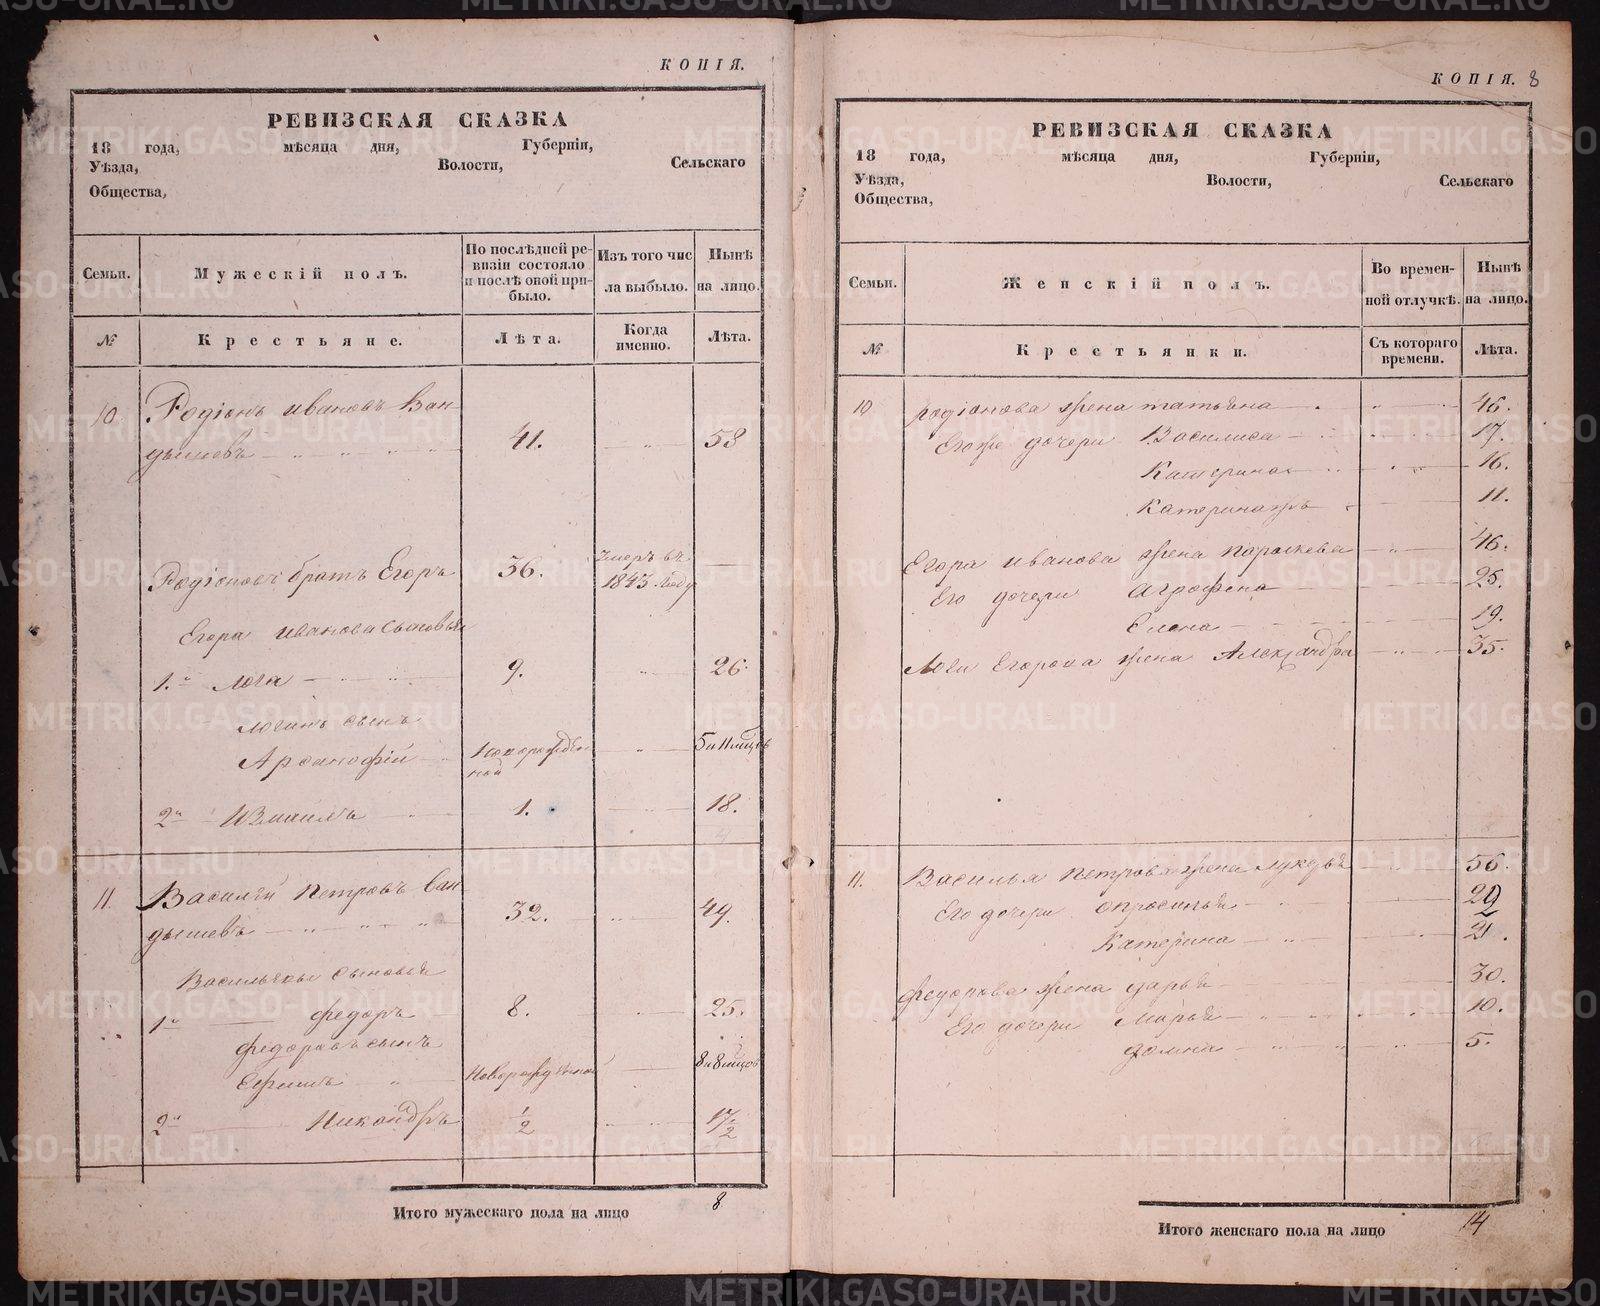 КОПІЯ.
РЕВИЗСКАЯ СКАЗКА
18 года, мѣсяца дня, Губерніи,
Уѣзда, Волости, Сельскаго
Общества,
Семьи. Мужескій полъ. По послѣдней ревизіи состояло и послѣ оной прибыло. Изъ того числа выбыло. Нынѣ на лицо.
№ Крестьяне. Лѣта. Когда именно. Лѣта.
10 Родіонъ Ивановъ Ван-
дышевъ 41. 58
Родіоновъ братъ Егоръ 36. Умеръ въ
1843 году
Егора Иванова сыновья
1.й Лога 9. 26.
Логинъ сынъ
Арсанофій Новорожден-
ной 5 и 11 мѣсцов
2й Измаилъ 1. 18.
11. Василій Петровъ Ван-
дышевъ 32. 49.
Васильевы сыновья
1й Федоръ 8. 25.
Федоровъ сынъ
Ефимъ Новорожденной 8 и 8 мѣсцов
2й Никандръ 1/2 17 1/2
Итого мужескаго пола на лицо 8
КОПІЯ. 8
РЕВИЗСКАЯ СКАЗКА
18 года, мѣсяца дня, Губерніи,
Уѣзда, Волости, Сельскаго
Общества,
Семьи. Женскій полъ. Во временной отлучкѣ. Нынѣ на лицо.
№ Крестьянки. Съ котораго времени. Лѣта.
10 Родіонова жена Татьяна 46.
Егоже дочери Василиса 17.
Катерина 16.
Катеринажъ 11.
Егора Иванова жена Параскева 46.
Его дочери Аграфена 25.
Елена 19.
Логи Егорова жена Александра 35.
11. Василья Петрова жена Лукерья 56.
Его дочери Опросинья 29
Катерина 21.
Федорова жена Дарья 30.
Его дочери Марья 10.
Домна 5.
Итого женскаго пола на лицо 14
METRIKI.GASO-URAL.RU